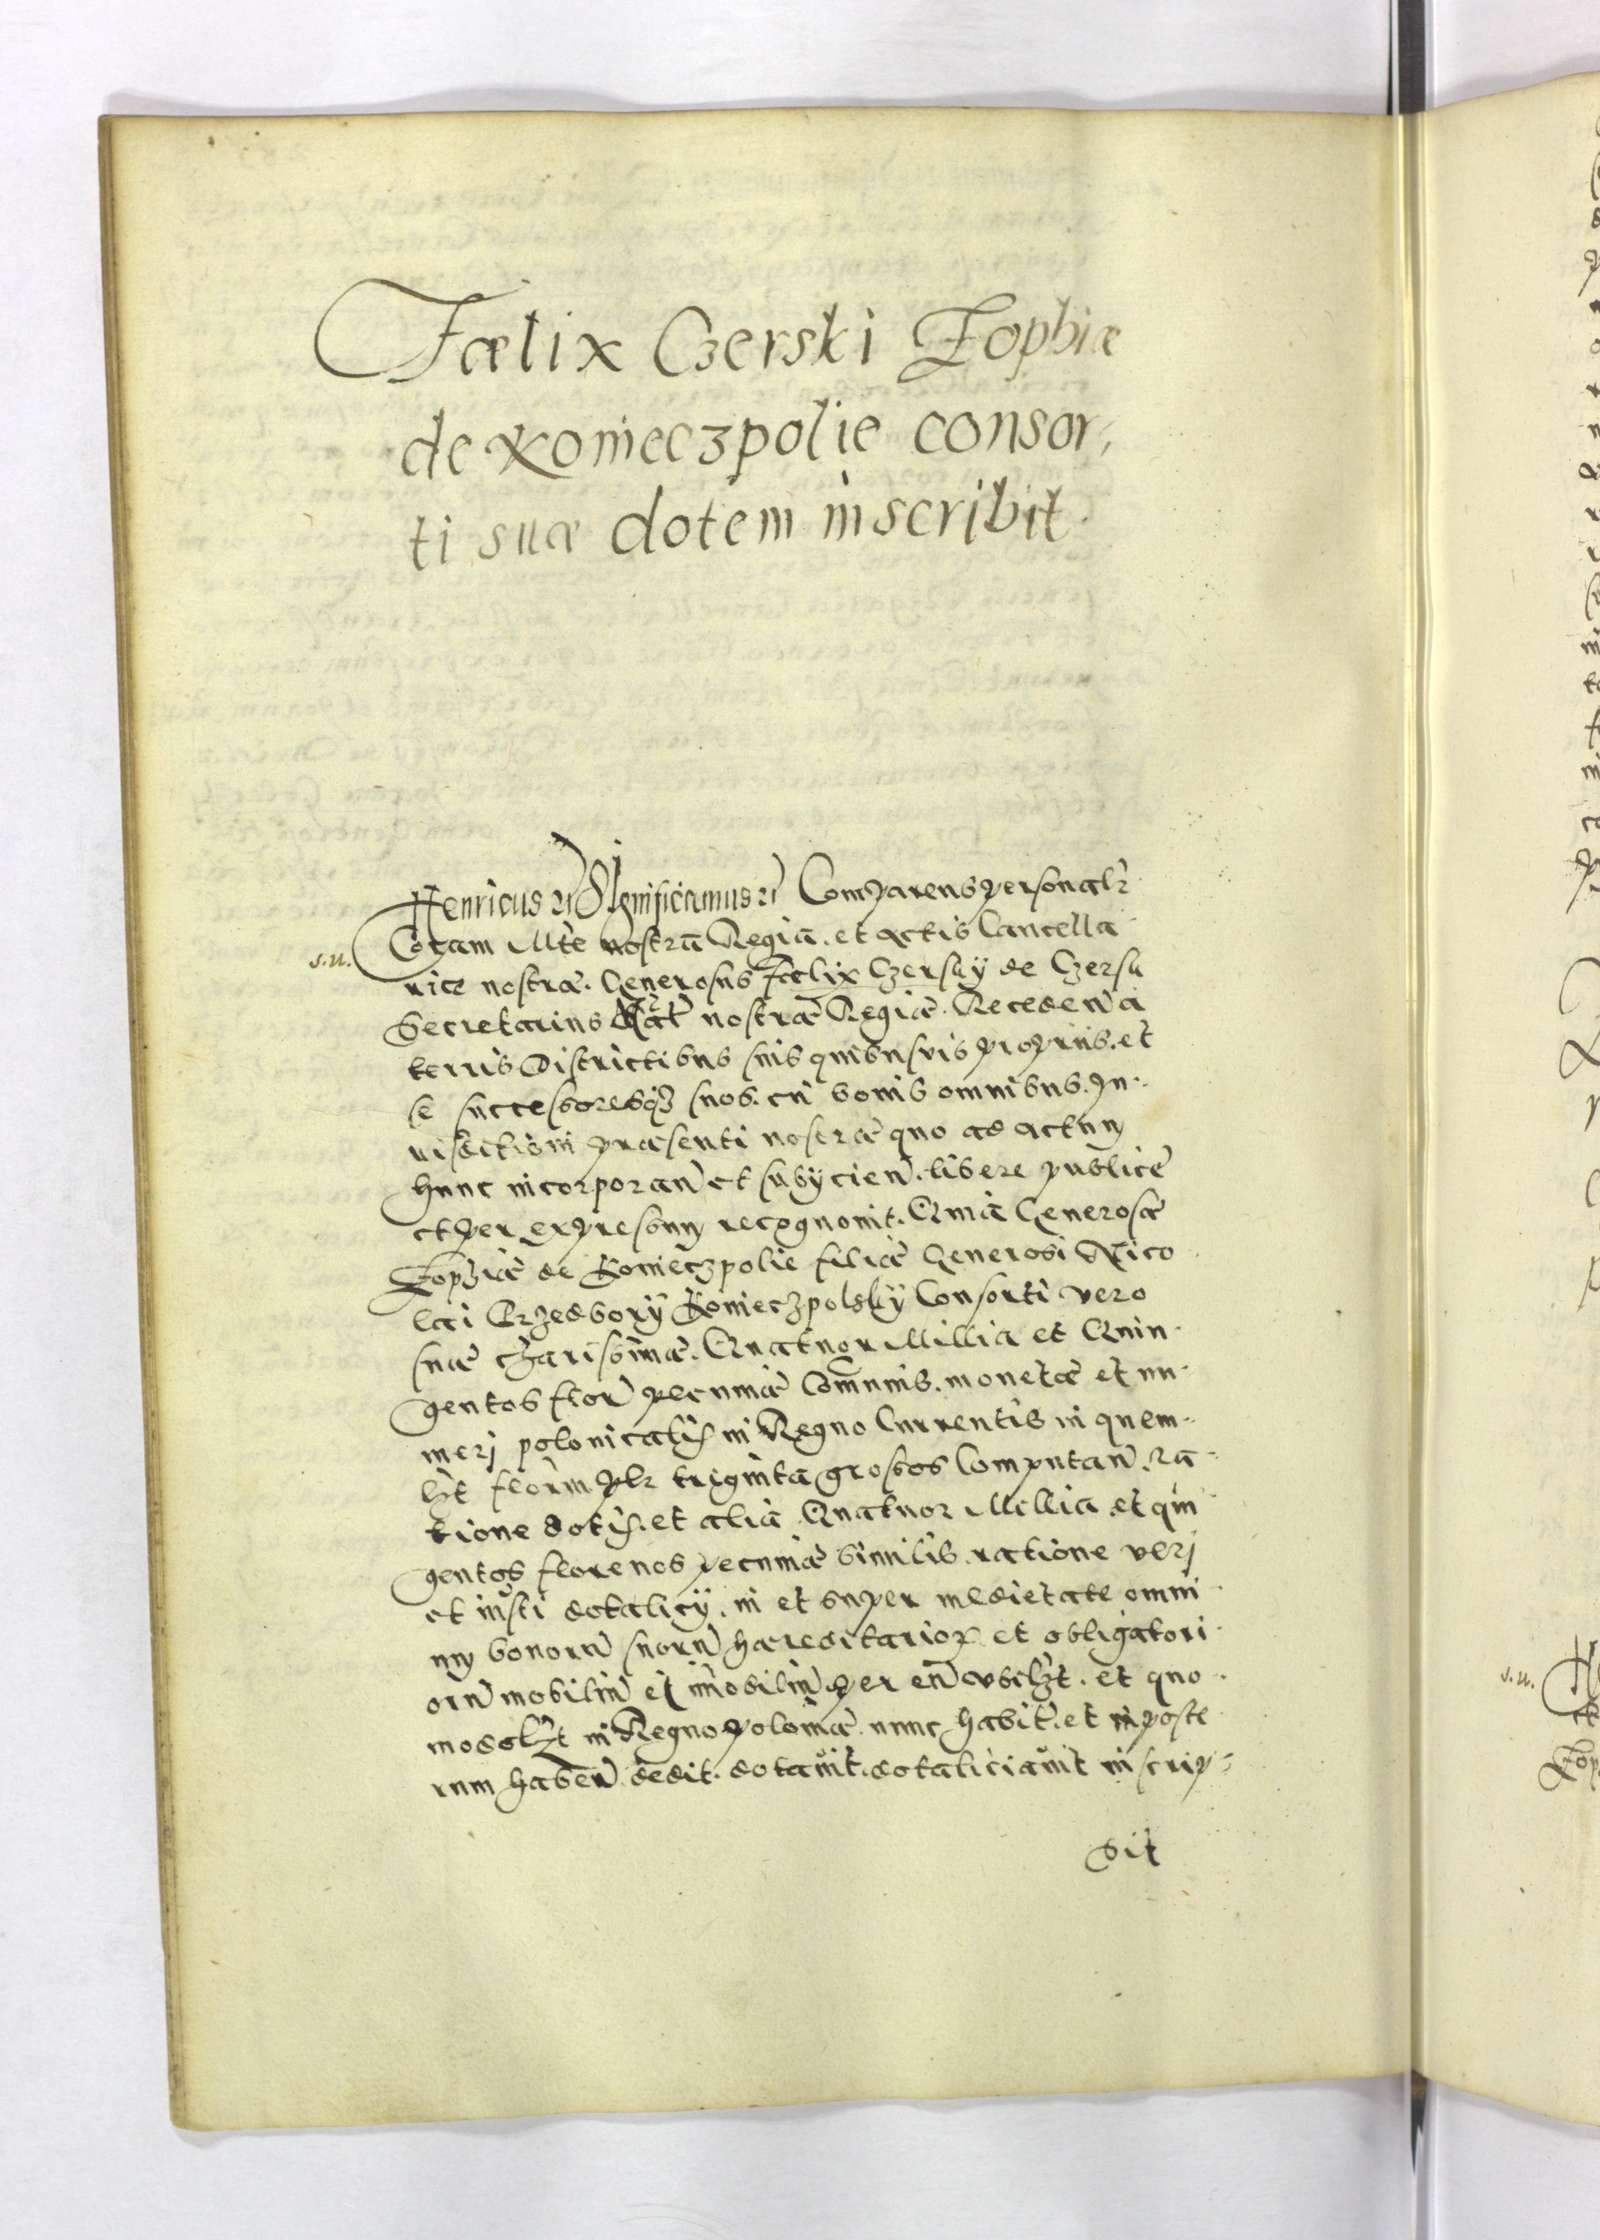 Fœlix Czerski Zophiæ
de Konieczpolie consor,
ti suæ dotem inscribit.
Henricus etc Significamus etc Comparens personalr
s.u. Coram Mte nostrā Regiā. et actis Cancella
riæ nostræ. Generosus Fœlix Czersky de Czersk
Secretarius Mat nostræ Regiæ. Receden̄ a
terris Districtibus suis quibusvis propriis. et
se successoresq3 suos. cū bonis omnibus. Iu
risdictioni præsenti nostræ quo ad actum
hunc incorporan̄ et subijcien̄. libere publice
et per expressum recognovit. Quia Generosæ
Zophiæ de Konieczpolie filiæ Generosi Nico
lai Przedbory Konieczpolsky Consorti vero
suæ charissimæ. Quatuor Millia et Quin
gentos flor̄ pecuniæ Com̄unis. monetæ et nu
meri polonicalis in Regno Currentis in quem
lz̄t florm plr triginta grossos Computan̄. ra
tione dotis. et alia Quatuor Millia et quin
gentos florenos pecuniæ similis ratione veri
et iusti dotalicy. in et super medietate omni
um bonorū suorū hæreditarior et obligatori
orū mobiliū et im̄obiliū per eū ubilz̄t. et quo
modolz̄t in Regno Poloniæ nunc habit̄. et in poste
rum haben̄ dedit. dotavit. dotaliciavit inscrip
sit
s.u.